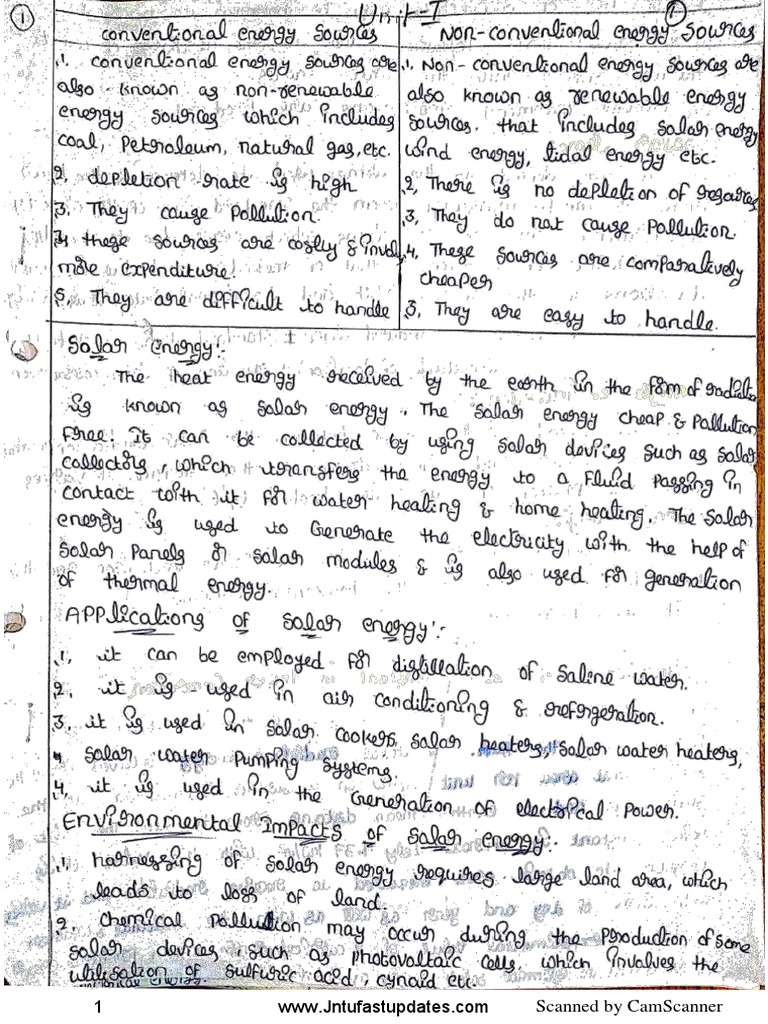 1
Unit-I
1.
conventional energy sources
1. conventional energy sources are
also known as non-renewable
energy sources which includes
coal, petroleum, natural gas, etc.
2. depletion rate is high
3. They cause Pollution.
these sources are costly &
more expenditure.
5. They are difficult to handle
Non-conventional energy sources
1. Non-conventional energy sources are
also known as renewable energy
sources. that includes solar energy
wind energy, tidal energy etc.
2, There is no depletion of
3, They do not cause Pollution.
4. These sources are comparatively
cheaper
They are easy to handle.
Solar Energy:-
The heat energy received by the earth in the form of
is known as solar energy. The solar energy cheap & Pollution
free. It can be collected by using solar devices such as solar
collectors, which transfers the energy to a fluid passing in
contact with it for water heating & home heating. The solar
energy is used to Generate the electricity with the help of
solar Panels or solar modules & is also used for generation
of thermal energy.
Applications of solar energy:-
1. it can be employed for distillation of saline water.
2. it is used in air conditioning & refrigeration.
3. it is used in solar cookers, solar heaters, solar water heaters,
solar water Pumping systems.
4. it is used in the Generation of electrical Power.
Environmental Impacts of solar energy:-
1. harnessing of solar energy requires large land area, which
leads to loss of land.
2. chemical Pollution may occur during the Production of some
solar devices such as Photovoltaic cells, which involves the
utilisation of sulfuric acid, cynaid etc.
1
www.Jntufastupdates.com
Scanned by CamScanner